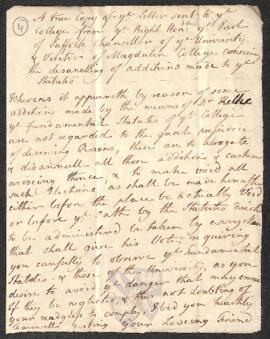 4
A true copy of ye Letter sent to ye
College from ye Right Honble ye Earle
of Suffolk Chancellor of ye University
& Visitor of Magdalen College concerning
the disanulling of additions made to ye
Statutes
Whereas it appeareth by reason of some
additions made by the means of Dr Kelke
ye fundamental Statutes of ye College
are not regarded to the great prejudice
of deserving Persons, these are to abrogate
& disannull all those additions & customs
arising thence, & to make void all
such Elections as shall be made henceforth
either before the place be actually void
or before ye oath by the Statutes
to be administered be taken by every man
that shall give his Vote; requiring
you carefully to observe ye fundamental
Statutes, & those of the University, as you
desire to avoid ye danger that may ensue
if they be neglected, & thus not doubting of
your readyness to comply, I bid you heartily
farewell resting your Loveing friend